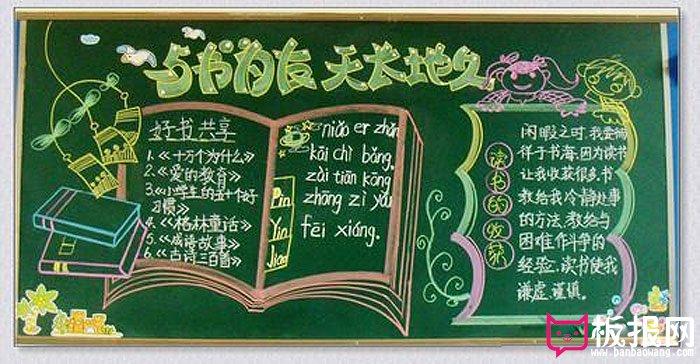 与书为友 天长地久
好书共享
1.《十万个为什么》
2.《爱的教育》
3.《小学生的五十个好
习惯》
4.《格林童话》
5.《成语故事》
6.《古诗三百首》
Pin
Yin
niǎo er zhǎn
kāi chì bǎng.
zài tiān kōng
zhōng zì yóu
fēi xiáng.
读书的收获
闲暇之时,我
徉于书海,因为读书
让我收获很多,书
教给我冷静处事
的方法,教给与
困难作科学的
经验,读书使我
谦虚,谨慎。
板报网
www.banbaowang.com